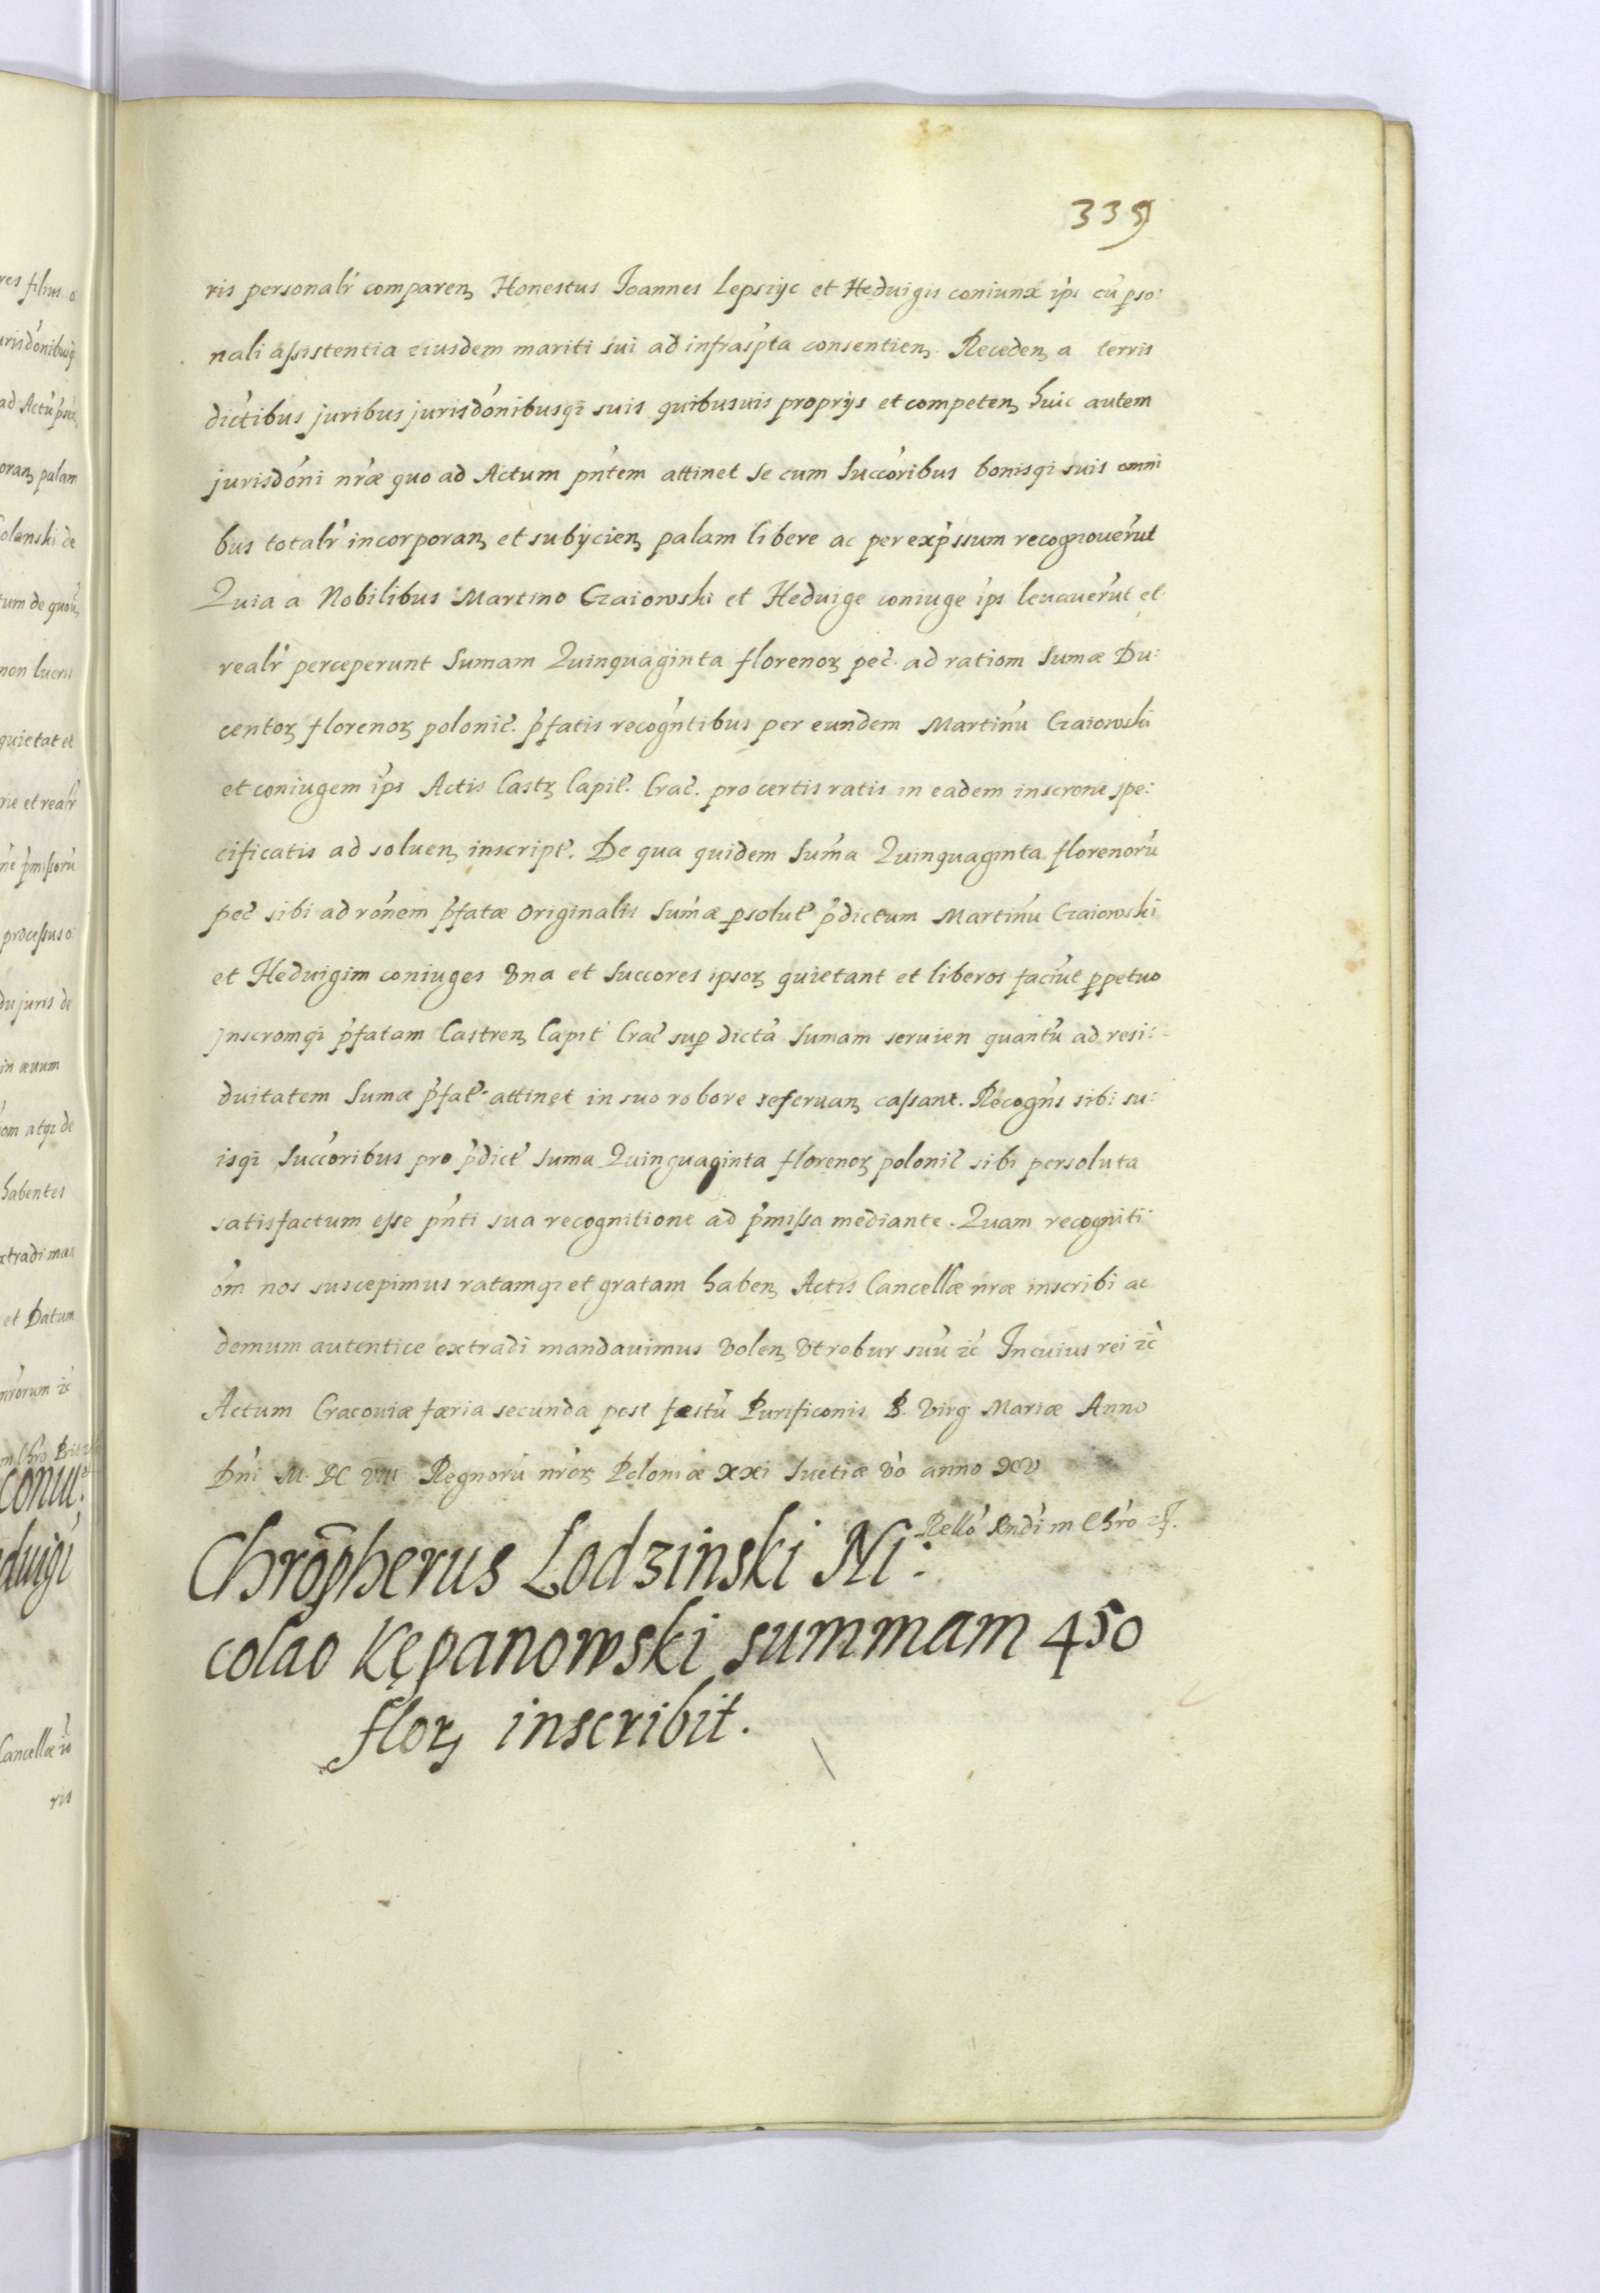 339
ris personalr̃ comparenʒ Honestus Joannes Lepszyc et Heduigis coniunx ip̃s cũ p̱so:
nali assistentia eiusdem mariti sui ad infrasp̃ta consentienʒ. Recedenʒ a terris
dictibus juribus jurisdónibusqꝫ suis quibusuis proprijs et competenʒ huic autem
jurisdóni nr̃æ quo ad Actum pñtem attinet se cum succõribus bonisqꝫ suis omni
bus totalr̃ incorporanʒ et subijcienʒ palam libere ac per exp̃ssum recognouer̃ut
Quia a Nobilibus Martino Czaiowski et Heduige coniuge ip̃s leuauer̃ut et
realr̃ perceperunt Sumam Quinquaginta florenoꝝ pec̃. ad ratiom Sumæ Du:
centoꝝ florenoꝝ polonic̃. p̃fatis recogñtibus per eundem Martinũ Czaiowski
et coniugem ip̃s Actis Castꝝ Capit̃. Crac̃. pro certis ratis in eadem inscrone spe:
cificatis ad soluenʒ inscript̃. De qua quidem Sum̃a Quinquaginta florenorũ
pec̃ sibi ad rõnem p̃fatæ originalis Sum̃æ p̱solut̃ p̃dictum Martinũ Czaiowski
et Heduigim coniuges vna et Succores ipsoꝝ quietant et liberos faciũt p̱petuo
Jnscromqꝫ p̃fatam Castrenʒ Capit̃ Crac̃ sup̱ dictã Sumam seruien quantũ ad resi:
duitatem Sumæ p̃fat̃. attinet in suo robore reseruanʒ cassant. Recogñs sibi su:
isqꝫ Succõribus pro p̃dict̃ suma Quinquaginta florenoꝝ polonic̃ sibi persoluta
satisfactum esse pñti sua recognitione ad p̃missa mediante. Quam recogniti
õm nos suscepimus ratamqꝫ et gratam habenʒ Actis Cancellæ nr̃æ inscribi ac
demum autentice extradi mandauimus volenʒ vt robur suũ ꝛc̃ In cuius rei ꝛc̃
Actum Cracouiæ færia secunda post fæstũ Purificonis B. Virg Mariæ Anno
Dñi M. DC VIII Regnorũ nr̃oꝝ Poloniæ xxi Suetiæ vo anno xv
Rello Rndi in Chr̃o ꝛc.
Chrop̃herus Lodzinski Ni:
colao Kępanowski summam 450
floꝝ inscribit.